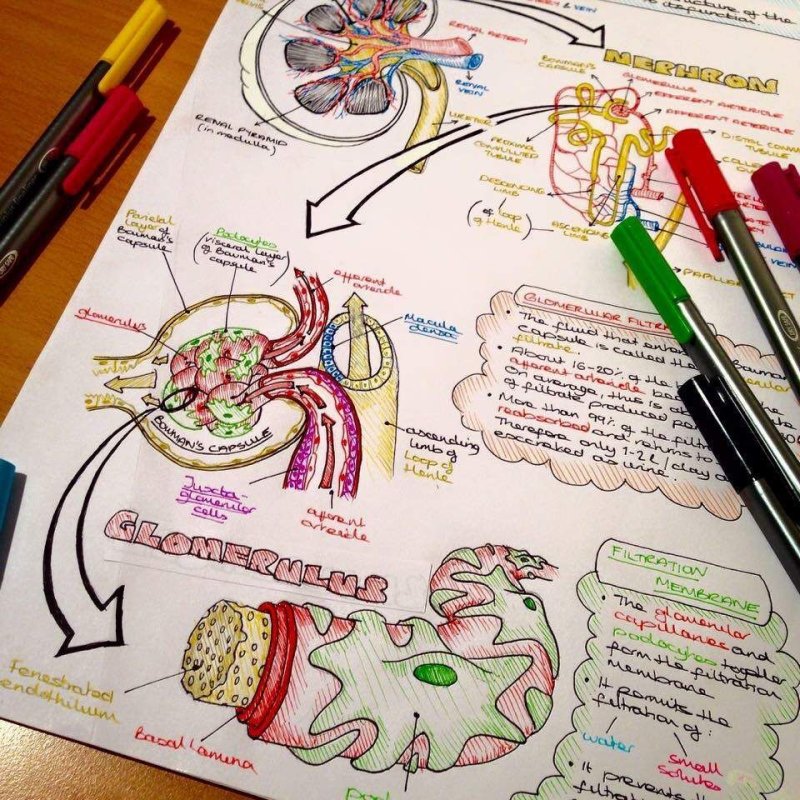 structure of the
dysfunction.
ARTERY & VEIN
RENAL ARTERY
RENAL
VEIN
URETER
RENAL PYRAMID
(in medulla)
NEPHRON
BOWMAN'S
CAPSULE
GLOMERULUS
EFFERENT ARTERIOLE
AFFERENT ARTERIOLE
DISTAL CONV
TUBULE
PROXIMAL
CONVOLUTED
TUBULE
DESCENDING
LIMB
(of loop
of Henle)
ASCENDING
LIMB
VEIN
PAPILLARY
Parietal
layer of
Bowman's
capsule
Podocytes
(visceral layer
of Bowman's
capsule)
efferent
arteriole
glomerulus
Macula
densa
BOWMAN'S CAPSULE
ascending
limb of
Loop of
Henle
Juxta-
glomerular
cells
afferent
arteriole
GLOMERULAR FILTR
• The fluid that ent
capsule is called the
filtrate.
• About 16-20% of the
afferent arteriole
On average, this is
of filtrate produced
• More than 99% of the filt
reabsorbed and returns to
Therefore only 1-2 L / day
excreted as urine.
GLOMERULUS
Fenestrated
endothilium
Basal Lamina
pod
FILTRATION
MEMBRANE
• The glomerular
capillaries and
podocytes together
form the filtration
membrane
• It permits the
filtration of:
water
small
solutes
• It prevents the
filtrat